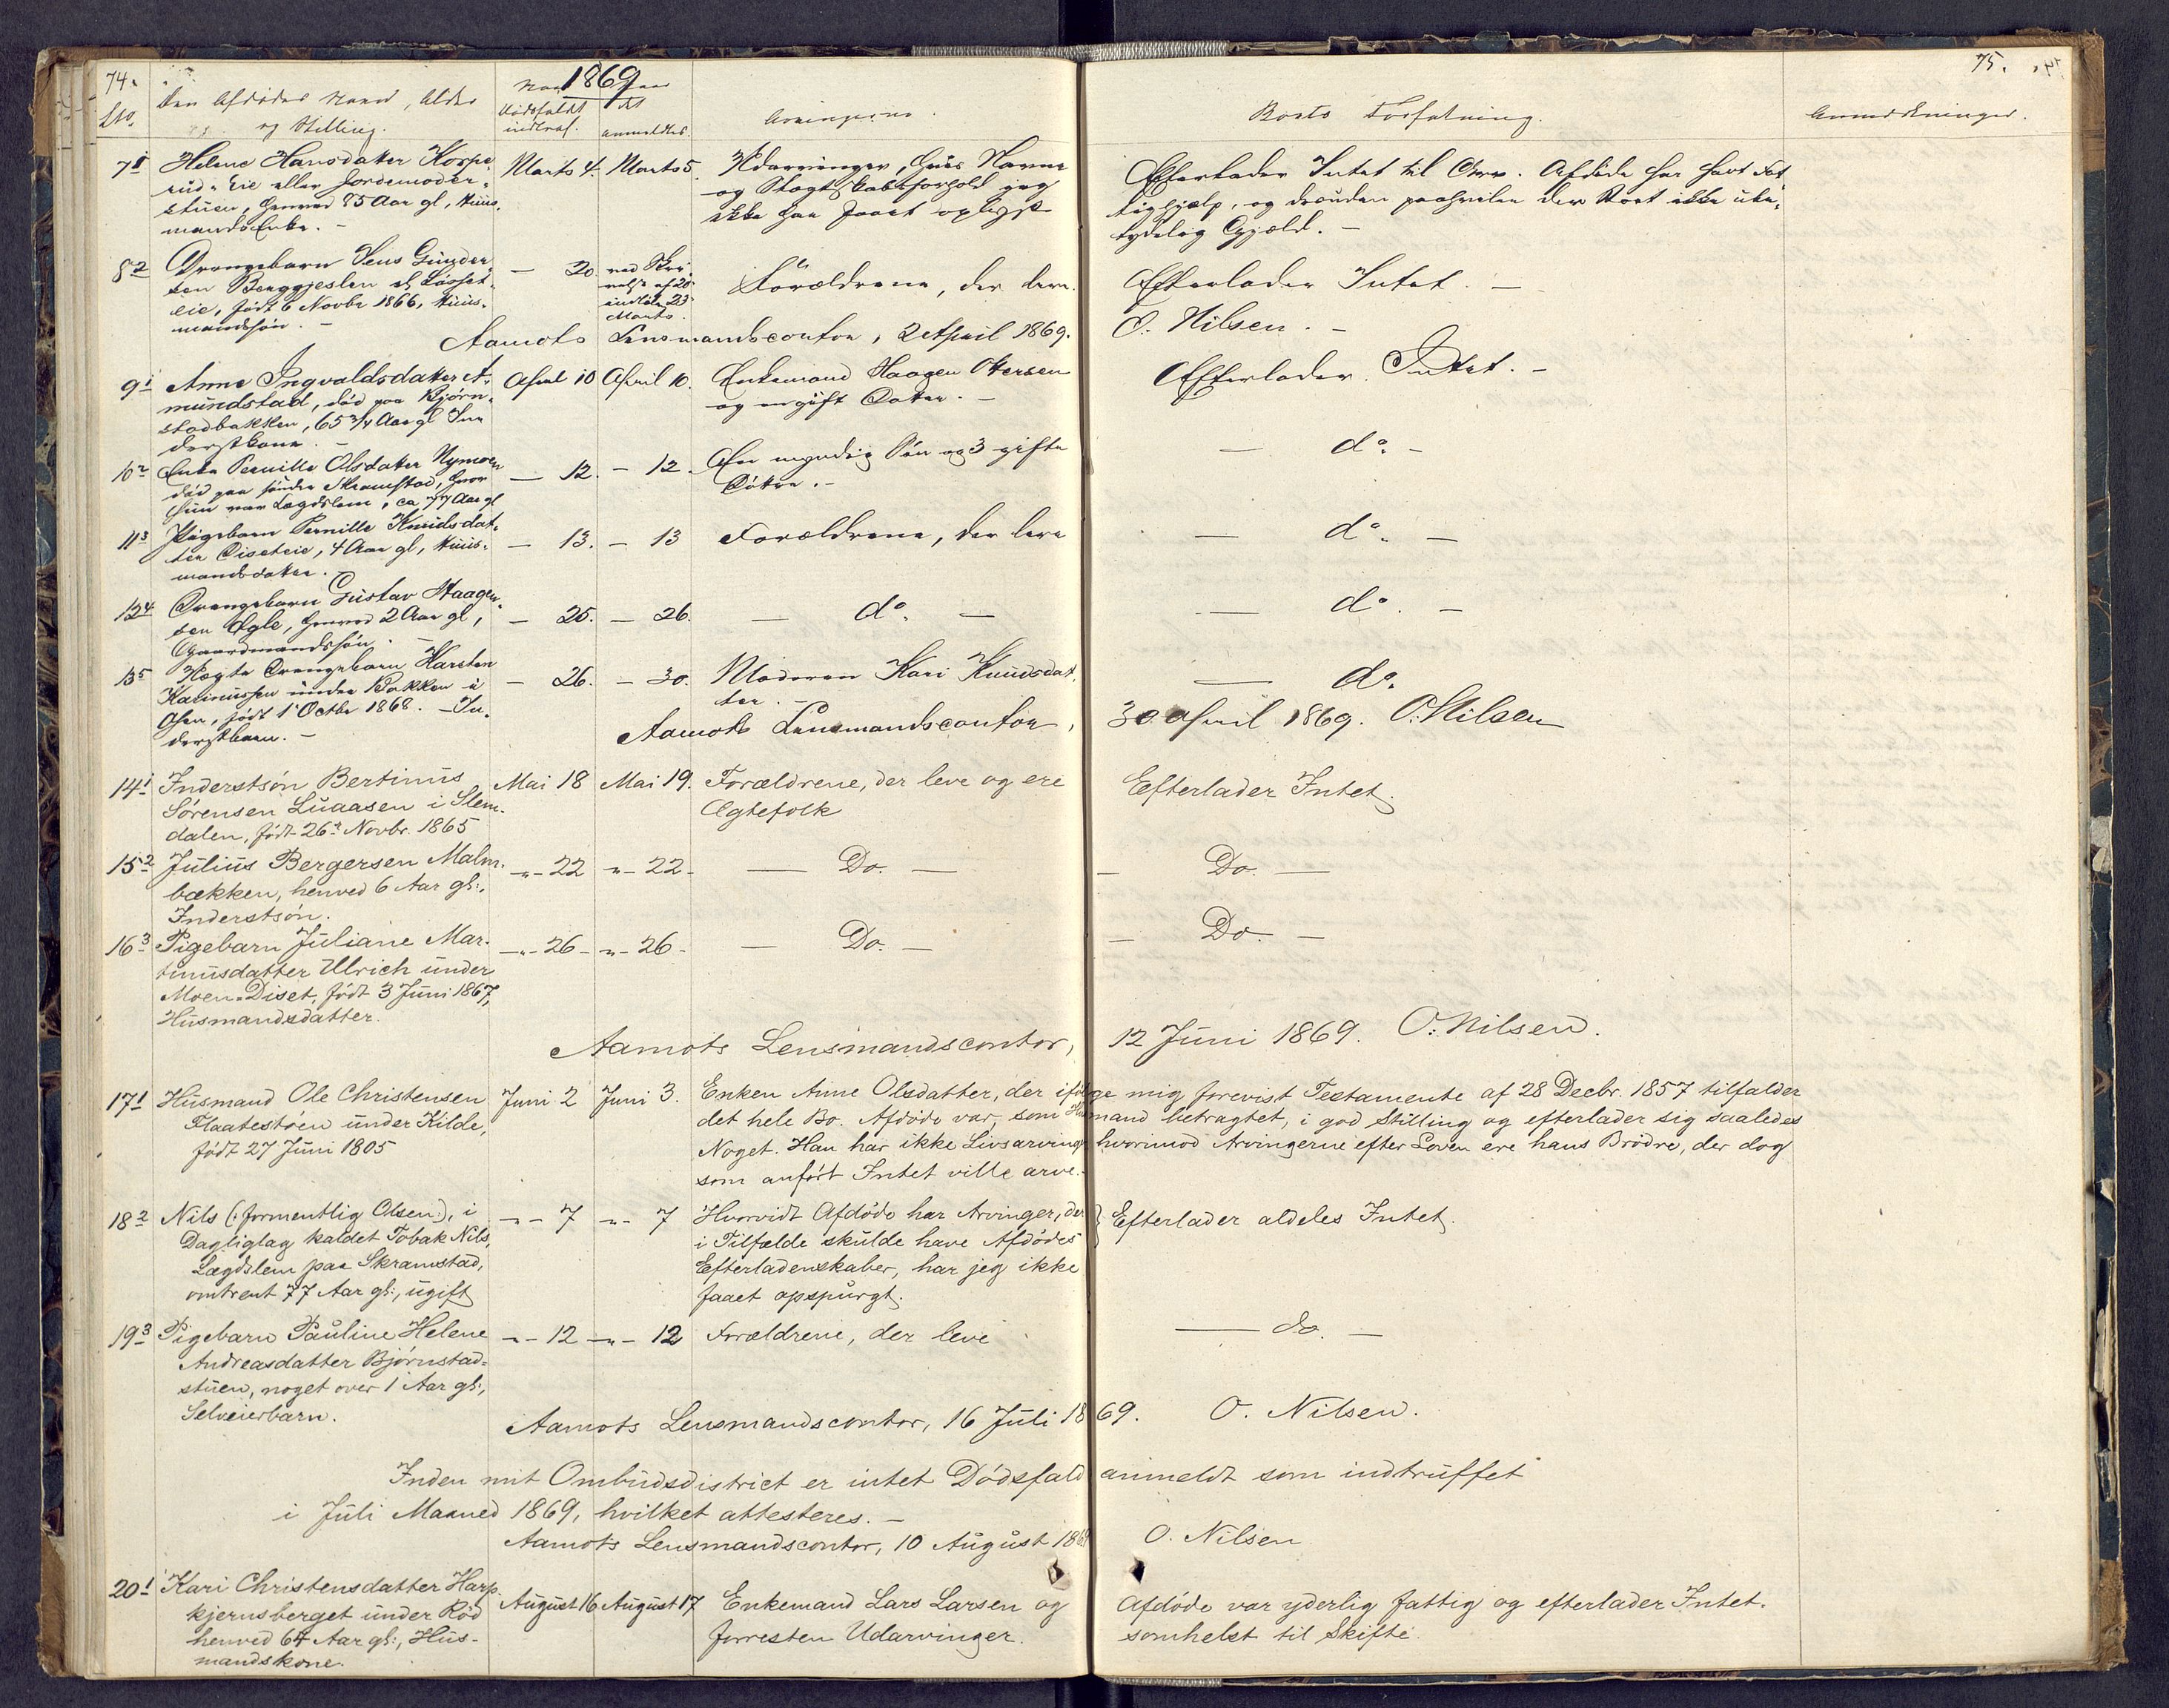 74.
1869
75.
No.
Den Afdødes Navn, Alder
og Stilling.
Naar
Dødsfaldet
indtraf.
det
anmeldtes.
Arvingerne.
Boets Forfatning.
Anmærkninger.
7 1 Helene Hansdatter Korpe-
rud-Eie eller Jordemoder-
stuen, henved 85 Aar gl, Huus-
mandsEnke. -
Marts 4. Marts 5. Udarvinger, hvis Navne
og Slægtskabsforhold jeg
ikke har faaet oplyst
Efterlader Intet til Arv. Afdøde har havt Fat-
tighjælp, og desuden paahviler der Boet ikke ube-
tydelig Gjæld. -
8 2 Drengebarn Jens Gunder-
sen Berggjeslen af Løsset-
eie, født 6 Novbr 1866, Huus-
mandssøn. -
- 20 ved Skri-
velse af 20
indkom 23
Marts.
Forældrene, der leve.
Efterlader Intet. -
Aamots Lensmandscontor, 2 April 1869. O. Nilsen. -
9 1 Anne Ingvaldsdatter A-
mundstad, død paa Bjørn-
stadbakken, 65 3/4 Aar gl In-
derstkone. -
April 10 April 10. Enkemand Haagen Otersen
og en gift Datter. -
Efterlader Intet. -
10 2 Enke Pernille Olsdatter Nymoen
død paa søndre Skramstad, hvor
hun var Lægdslem, ca 77 Aar gl
- 12. - 12. En myndig Søn og 3 gifte
Døtre. -
- do. -
11 3 Pigebarn Pernille Knudsdat-
ter Diseteie, 4 Aar gl, Huus-
mandsdatter. -
- 13. - 13 Forældrene, der leve
- do. -
12 4 Drengebarn Gustav Haagen-
sen Ygle, henved 2 Aar gl,
Gaardmandssøn. -
- 25. - 26. - do. -
- do. -
13 5 Uægte Drengebarn Karsten
Karinussen under Bakken i
Osen, født 1 Octbr 1868. - In-
derstbarn. -
- 26. - 30. Moderen Kari Knudsdat-
ter. -
- do.
Aamots Lensmandscontor, 30 April 1869. O. Nilsen
14 1 Inderstsøn Bertinus
Sørensen Luaasen i Slem-
dalen, født 26de Novbr. 1865
Mai 18 Mai 19. Forældrene, der leve og ere
Ægtefolk
Efterlader Intet.
15 2 Julius Bergersen Malm-
bækken, henved 6 Aar gl:,
Inderstsøn.
-"- 22 -"- 22- - Do. -
- Do. -
16 3 Pigebarn Juliane Mar-
tinusdatter Ullrich under
Moen-Diset, født 3 Juni 1867,
Husmandsdatter.
-"- 26 - -"- 26 - - Do. -
- Do. -
Aamots Lensmandscontor, 12 Juni 1869. O: Nilsen.
17 1 Husmand Ole Christensen
Flaatestøen under Kilde,
født 27 Juni 1805
Juni 2 Juni 3. Enken Anne Olsdatter, der ifølge mig forevist Testamente af 28 Decbr. 1857 tilfalder
det hele Bo. Afdøde var, som Husmand betragtet, i god Stilling og efterlader sig saaledes
Noget. Han har ikke Livsarvinger hvorimod Arvingerne efter Loven ere hans Brødre, der dog
som anført Intet ville arve. -
18 2 Nils (: formentlig Olsen:), i
Dagliglag kaldet Tobak Nils,
Lægdslem paa Skramstad,
omtrent 77 Aar gl:, ugift
-"- 7 -"- 7 Hvorvidt Afdøde har Arvinger, der
i Tilfælde skulde have Afdødes
Efterladenskaber, har jeg ikke
faaet opspurgt.
} Efterlader aldeles Intet.
19 3 Pigebarn Pauline Helene
Andreasdatter Bjørnstad-
stuen, noget over 1 Aar gl:,
Selveierbarn.
-"- 12 -"- 12 Forældrene, der leve
- do. -
Aamots Lensmandscontor, 16 Juli 1869. O. Nilsen.
Inden mit Ombudsdistrict er intet Dødsfald anmeldt som indtruffet
i Juli Maaned 1869, hvilket attesteres. -
Aamots Lensmandscontor, 10 August 1869 O. Nilsen
20 1 Kari Christensdatter Harp-
kjernsberget under Rød
henved 64 Aar gl:, Hus-
mandskone.
August 16 August 17 Enkemand Lars Larsen og
forresten Udarvinger.
Afdøde var yderlig fattig og efterlader Intet.
somhelst til Skifte.